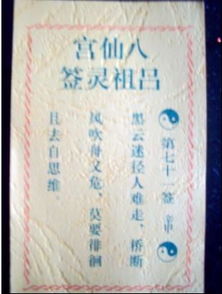 八仙宫
吕祖灵签
第七十一签 辛甲
黑云迷径人难走、桥断
风吹舟又危、莫要徘徊
且去自思维.